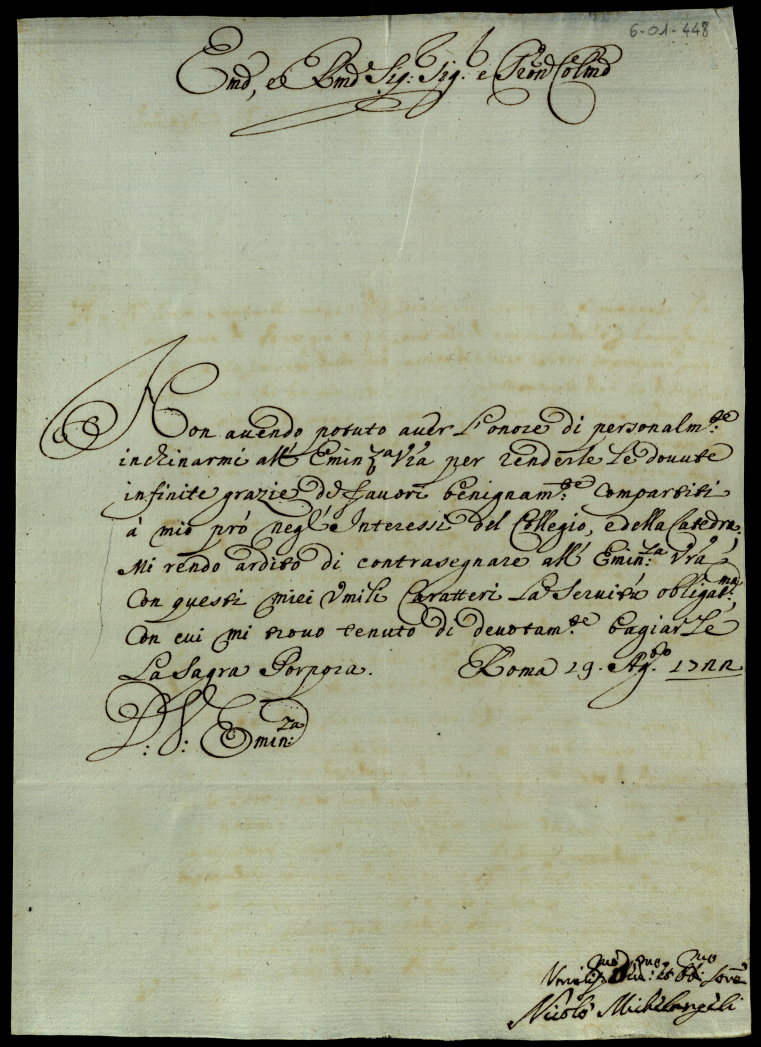 6-01-448
Emo, e Rmo Sig: Sig: e Pron Colmo
Non auendo potuto auer L'onore di personalm:te
inchinarmi all' Emin:za Vra per renderle Le douute
infinite grazie de' fauori benignam:te Compartiti
à mio prò negl' Interessi del Collegio, e della Catedra,
Mi rendo ardito di contrasegnare all' Emin:za Vra,
Con questi miei Vmili Caratteri La Seruitù obligat:ma,
Con cui mi trouo tenuto di deuotam:te bagiarLe
La Sagra Porpora. Roma 19. Ag:o 1722
D: V: Emin:za
Vmiliss:mo Obb:mo Serre
Nicolò Michelangeli